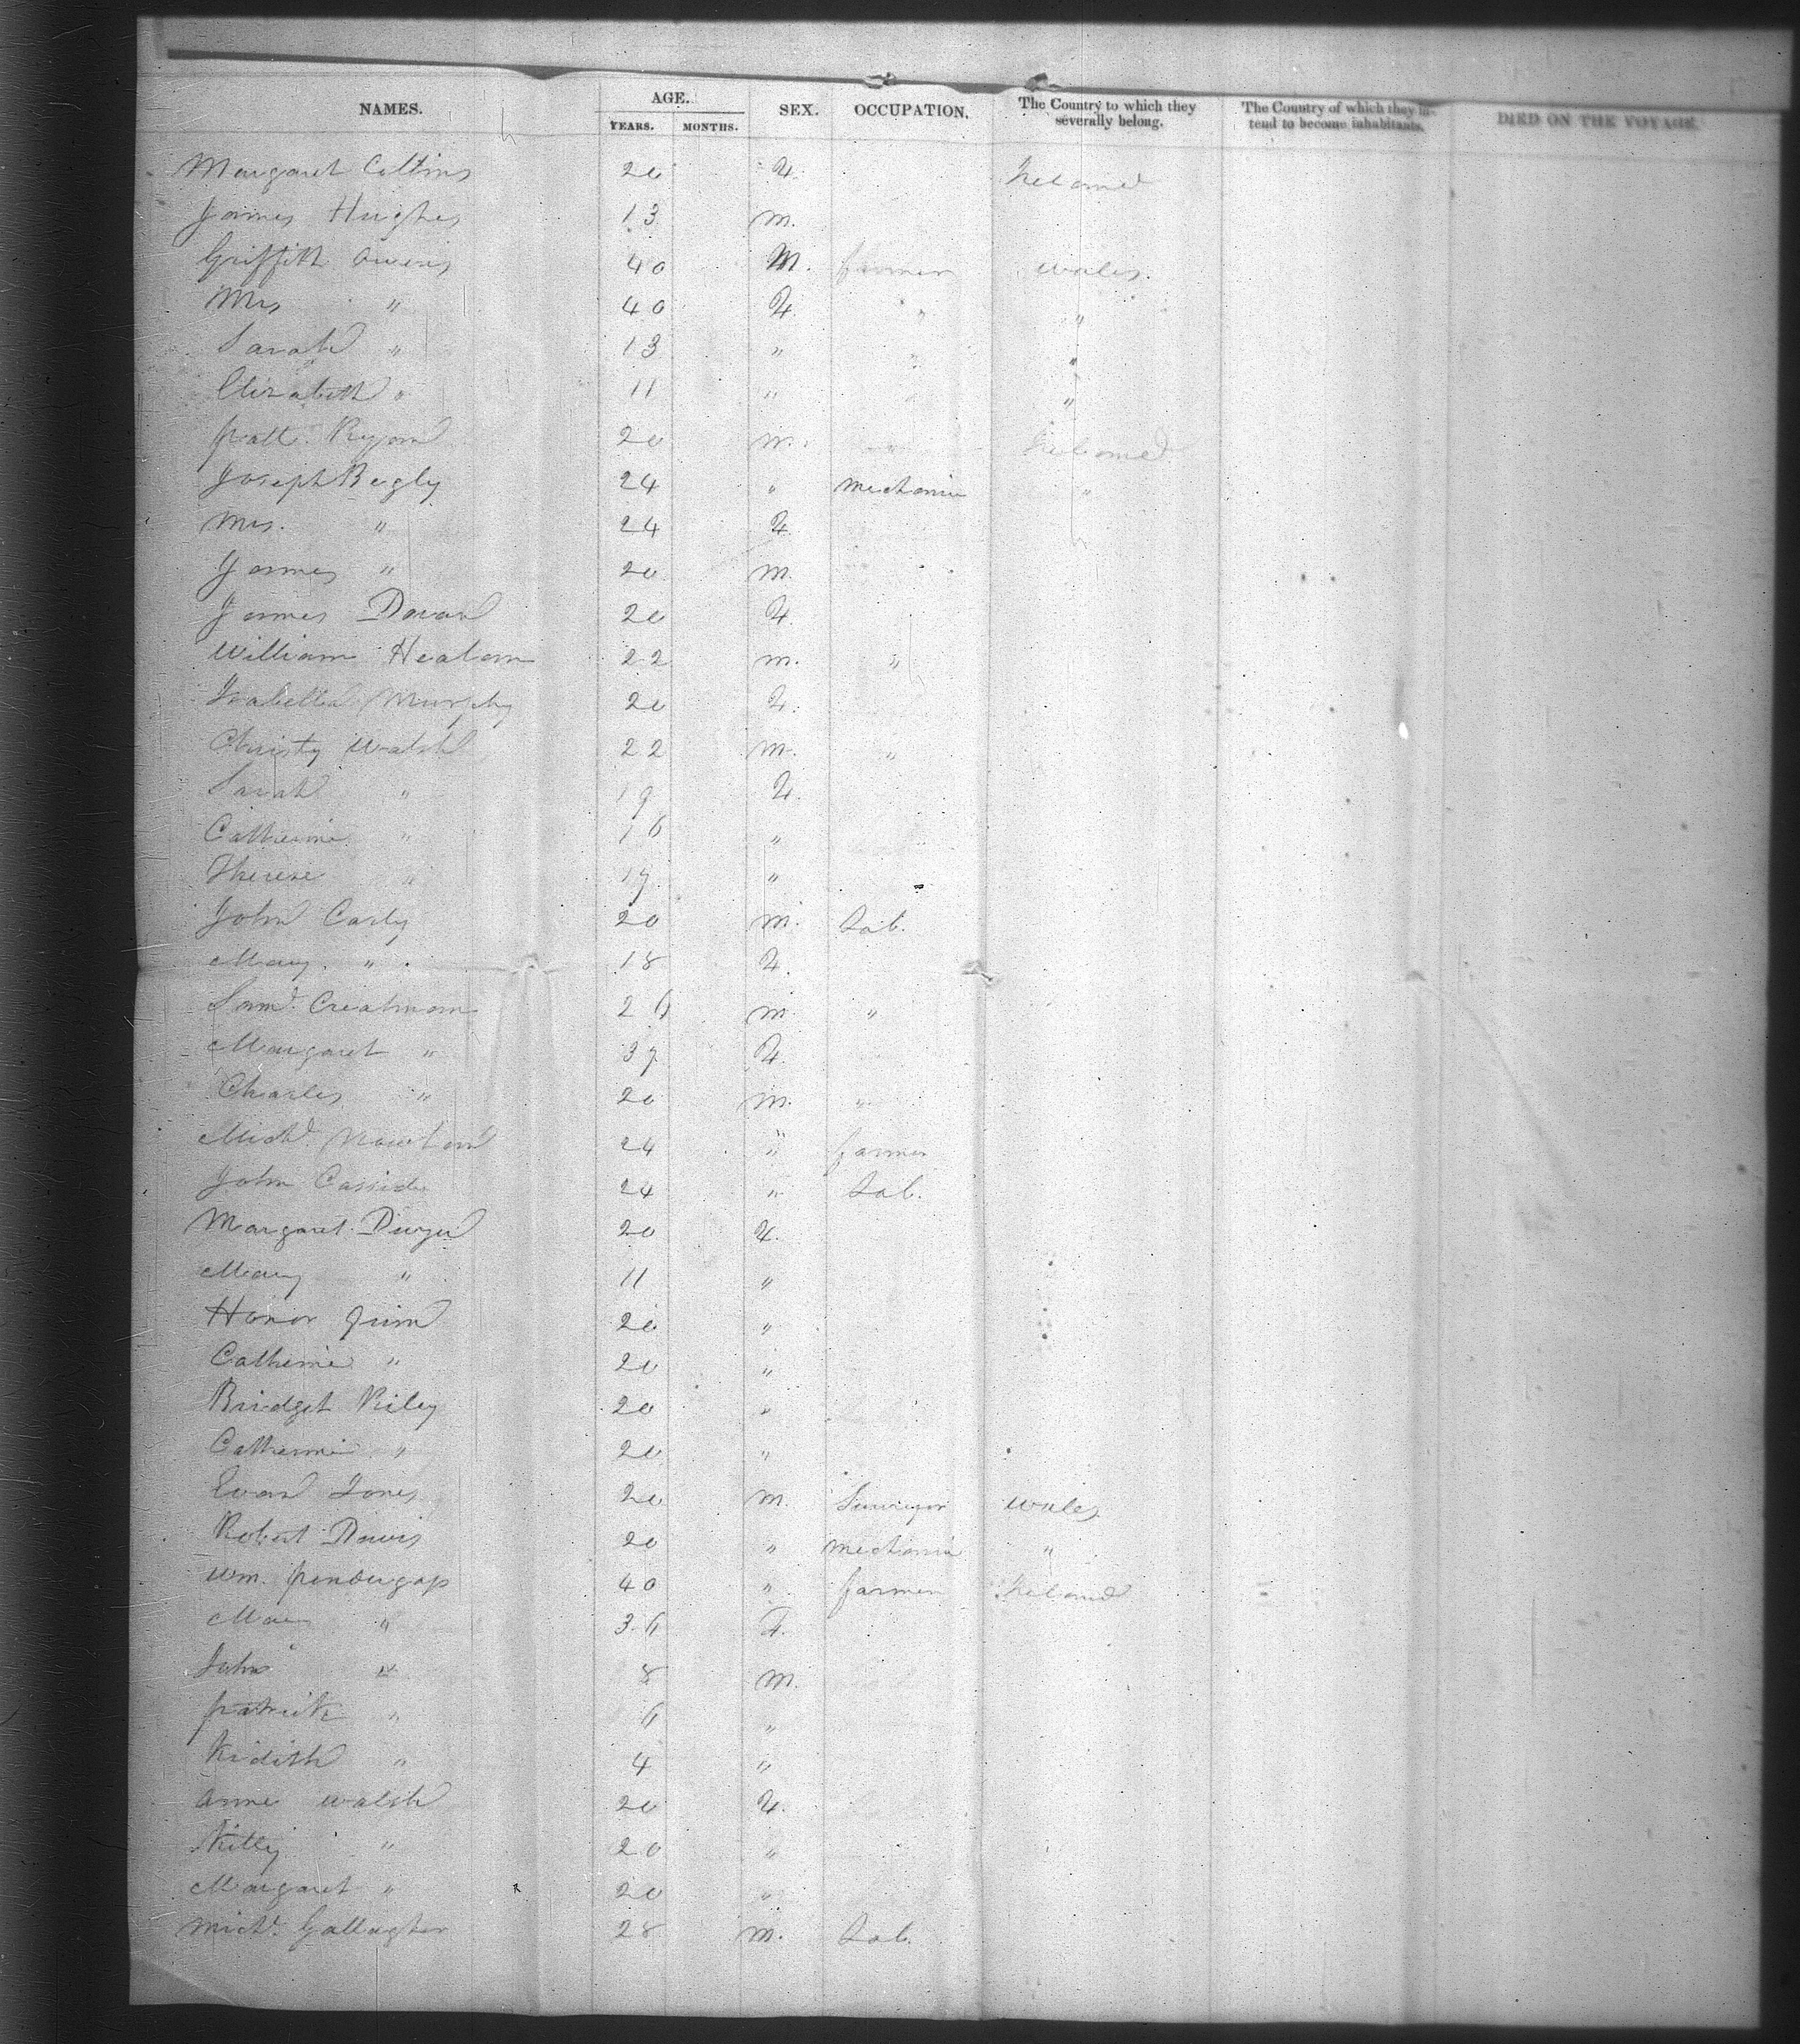 NAMES. AGE. SEX. OCCUPATION. The Country to which they severally belong. The Country of which they intend to become inhabitants. DIED ON THE VOYAGE.
YEARS. MONTHS.
Margaret Collins 20 F. Ireland
James Hughes 13 M.
Griffith Owens 40 M. farmer Wales.
Mrs " 40 F. " "
Sarah " 13 " " "
Elizabeth " 11 " "
Patt. Ryan 20 M. " Ireland
Joseph Begly 24 " Mechanic "
Mrs. " 24 F.
James " 20 M.
James Doran 20 F.
William Healam 22 M. "
Isabella Murphy 20 F.
Christy Walsh 22 M. "
Sarah " 19 F.
Catherine " 16 "
Therese " 17 "
John Carly 20 M. Lab.
Mary " 18 F.
Saml. Creatmam 26 M. "
Margaret " 37 F.
Charles " 20 M. "
Michl. Nowland 24 " farmer
John Casside 24 " Lab.
Margaret Dwyer 20 F.
Mary " 11 "
Honor 20 "
Catherine " 20 "
Bridget Riley 20 "
Catherine " 20 "
Evan Jones 20 M. Surveyor Wales
Robert Davis 20 " Mechanic "
Wm. Pendergass 40 " farmer Ireland
Mary " 36 F.
John " 8 M.
Patrick " 6 "
" 4 "
Anne Walsh 20 F.
Kitty " 20 "
Margaret " 20 "
Michl. Gallagher 28 M. Lab.